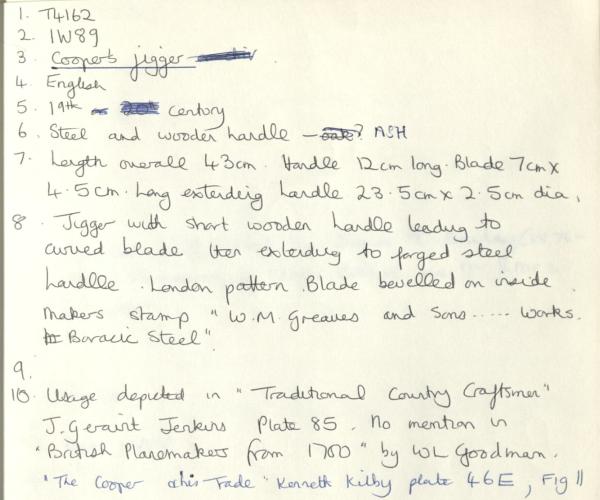 1. T4162
2. IW89
3. Cooper's jigger
4. English
5. 19th century
6. Steel and wooden handle – ? ASH
7. Length overall 43cm. Handle 12cm long. Blade 7cm x
4.5cm. Long extending handle 23.5cm x 2.5cm dia.
8. Jigger with short wooden handle leading to
curved blade then extending to forged steel
handle. London pattern. Blade bevelled on inside
makers stamp "W.M. Greaves and Sons ..... Works.
Boracic Steel".
9.
10. Usage depicted in "Traditional Country Craftsmen"
J. Geraint Jenkins Plate 85. No mention in
"British Planemakers from 1700" by WL Goodman.
"The Cooper & his Trade" Kenneth Kilby plate 46E, Fig 11